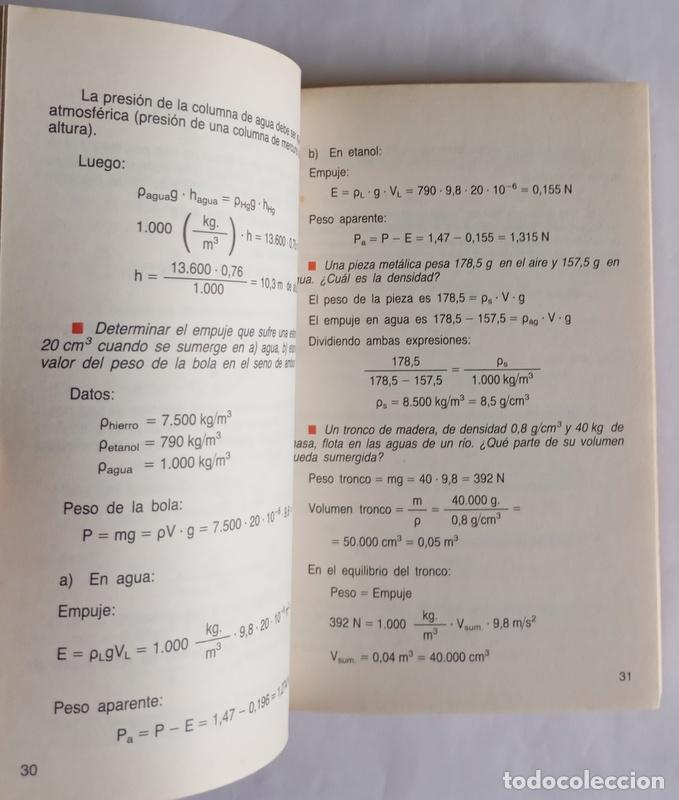 La presión de la columna de agua debe ser
atmosférica (presión de una columna de
altura).
Luego:
ρagua g · hagua = ρHg g · hHg
1.000 ( kg. / m³ ) · h = 13.600 ·
h = 13.600 · 0,76 / 1.000 = 10,3 m de
■ Determinar el empuje que sufre una
20 cm³ cuando se sumerge en a) agua, b)
valor del peso de la bola en el seno de
Datos:
ρhierro = 7.500 kg/m³
ρetanol = 790 kg/m³
ρagua = 1.000 kg/m³
Peso de la bola:
P = mg = ρV · g = 7.500 · 20 · 10⁻⁶ ·
a) En agua:
Empuje:
E = ρLgVL = 1.000 kg. / m³ · 9,8 · 20 · 10⁻⁶
Peso aparente:
Pa = P − E = 1,47 − 0,196 =
30
b) En etanol:
Empuje:
E = ρL · g · VL = 790 · 9,8 · 20 · 10⁻⁶ = 0,155 N
Peso aparente:
Pa = P − E = 1,47 − 0,155 = 1,315 N
■ Una pieza metálica pesa 178,5 g en el aire y 157,5 g en
ua. ¿Cuál es la densidad?
El peso de la pieza es 178,5 = ρs · V · g
El empuje en agua es 178,5 − 157,5 = ρag · V · g
Dividiendo ambas expresiones:
178,5 / 178,5 − 157,5 = ρs / 1.000 kg/m³
ρs = 8.500 kg/m³ = 8,5 g/cm³
■ Un tronco de madera, de densidad 0,8 g/cm³ y 40 kg de
asa, flota en las aguas de un río. ¿Qué parte de su volumen
ueda sumergida?
Peso tronco = mg = 40 · 9,8 = 392 N
Volumen tronco = m / ρ = 40.000 g. / 0,8 g/cm³ =
= 50.000 cm³ = 0,05 m³
En el equilibrio del tronco:
Peso = Empuje
392 N = 1.000 kg. / m³ · Vsum. · 9,8 m/s²
Vsum. = 0,04 m³ = 40.000 cm³
31
todocoleccion